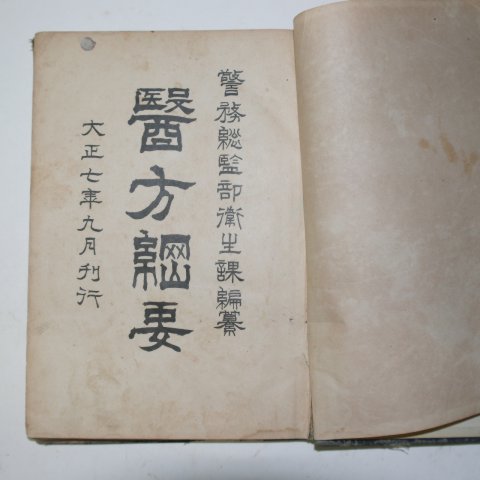 警務総監部衛生課編纂
醫方綱要
大正七年九月刊行